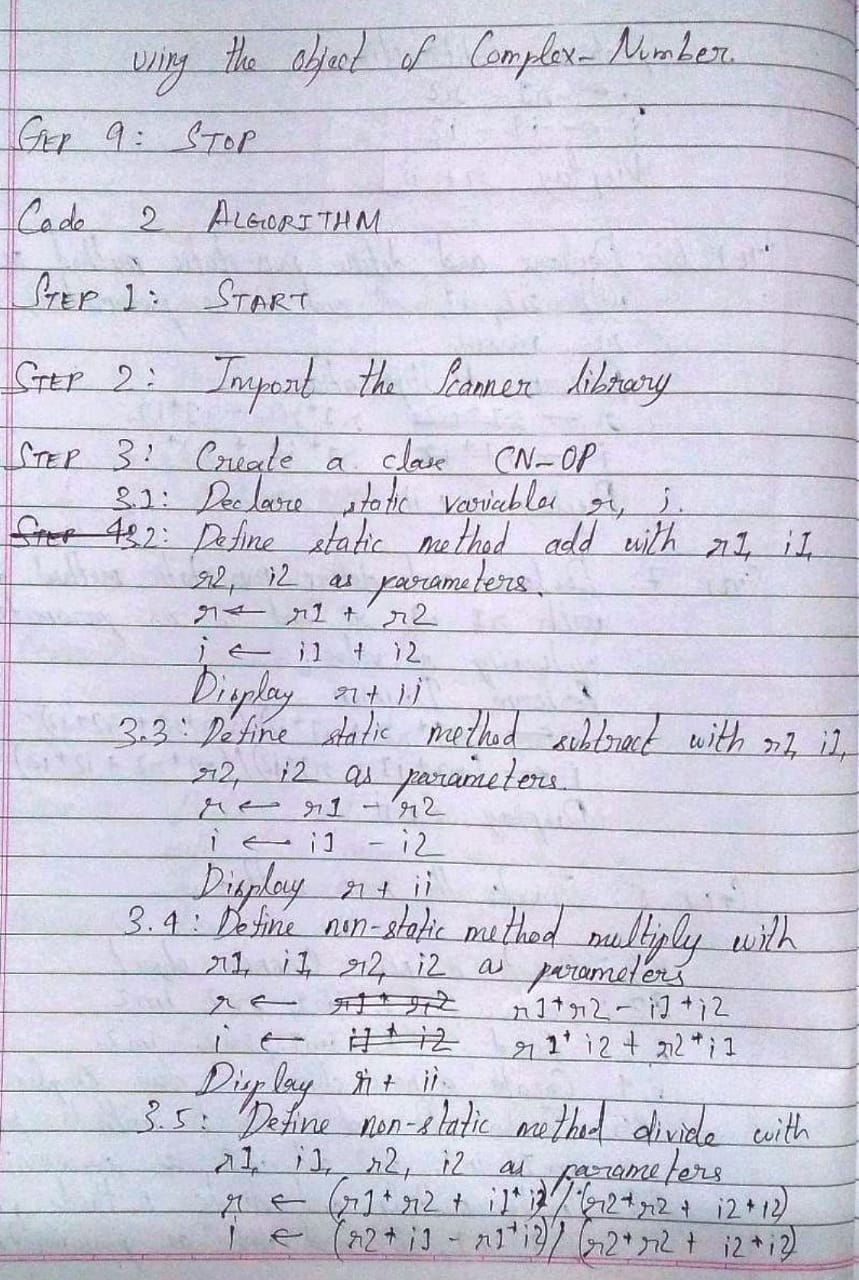 using the object of Complex-Number.
STEP 9: STOP
Code 2 ALGORITHM
STEP 1: START
STEP 2: Import the Scanner library
STEP 3: Create a class CN-OP
3.1: Declare static variables r, i.
3.2: Define static method add with r1, i1,
r2, i2 as parameters.
r ← r1 + r2
i ← i1 + i2
Display r + ii
3.3: Define static method subtract with r1, i1,
r2, i2 as parameters.
r ← r1 - r2
i ← i1 - i2
Display r + ii
3.4: Define non-static method multiply with
r1, i1, r2, i2 as parameters
r ← r1*r2 - i1*i2
i ← r1*i2 + r2*i1
Display r + ii
3.5: Define non-static method divide with
r1, i1, r2, i2 as parameters
r ← (r1*r2 + i1*i2)/(r2*r2 + i2*i2)
i ← (r2*i1 - r1*i2)/(r2*r2 + i2*i2)